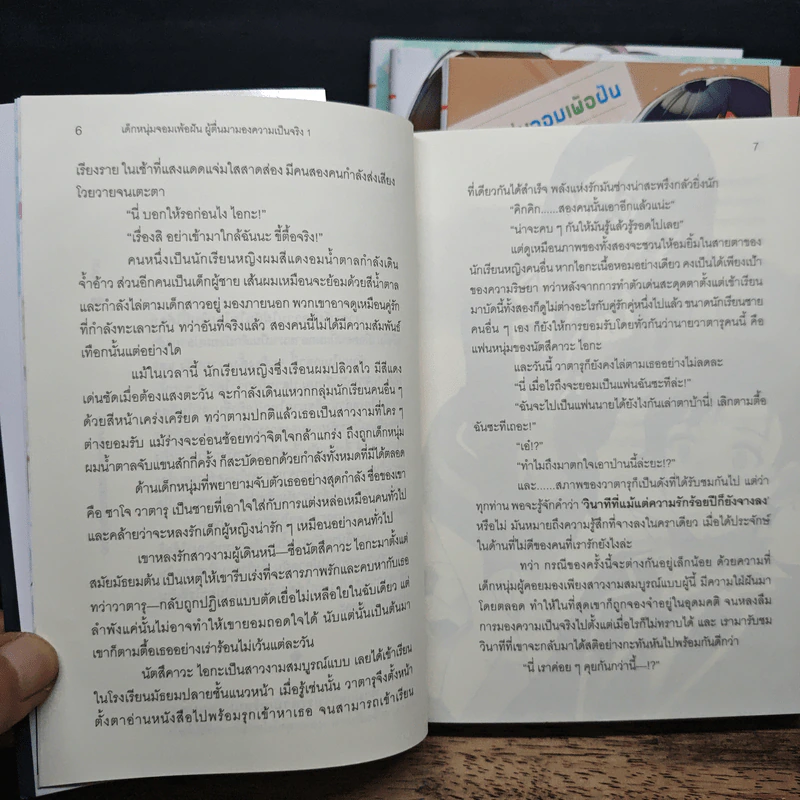 นจอมเพ้อฝัน
6 เด็กหนุ่มจอมเพ้อฝัน ผู้ตื่นมามองความเป็นจริง 1
เรียงราย ในเช้าที่แสงแดดแจ่มใสสาดส่อง มีคนสองคนกำลังส่งเสียง
โวยวายจนเตะตา
"นี่ บอกให้รอก่อนไง ไอกะ!"
"เรื่องสิ อย่าเข้ามาใกล้ฉันนะ ขี้ตื๊อจริง!"
คนหนึ่งเป็นนักเรียนหญิงผมสีแดงอมน้ำตาลกำลังเดิน
จ้ำอ้าว ส่วนอีกคนเป็นเด็กผู้ชาย เส้นผมเหมือนจะย้อมด้วยสีน้ำตาล
และกำลังไล่ตามเด็กสาวอยู่ มองภายนอก พวกเขาอาจดูเหมือนคู่รัก
ที่กำลังทะเลาะกัน ทว่าอันที่จริงแล้ว สองคนนี้ไม่ได้มีความสัมพันธ์
เทือกนั้นแต่อย่างใด
แม้ในเวลานี้ นักเรียนหญิงซึ่งเรือนผมปลิวสไว มีสีแดง
เด่นชัดเมื่อต้องแสงตะวัน จะกำลังเดินแหวกกลุ่มนักเรียนคนอื่น ๆ
ด้วยสีหน้าเคร่งเครียด ทว่าตามปกติแล้วเธอเป็นสาวงามที่ใคร ๆ
ต่างยอมรับ แม้ร่างจะอ่อนช้อยทว่าจิตใจกล้าแกร่ง ถึงถูกเด็กหนุ่ม
ผมน้ำตาลจับแขนสักกี่ครั้ง ก็สะบัดออกด้วยกำลังทั้งหมดที่มีได้ตลอด
ด้านเด็กหนุ่มที่พยายามจับตัวเธออย่างสุดกำลัง ชื่อของเขา
คือ ซาโจ วาตารุ เป็นชายที่เอาใจใส่กับการแต่งหล่อเหมือนคนทั่วไป
และคล้ายว่าจะหลงรักเด็กผู้หญิงน่ารัก ๆ เหมือนอย่างคนทั่วไป
เขาหลงรักสาวงามผู้เดินหนี—ชื่อนัตสึคาวะ ไอกะมาตั้งแต่
สมัยมัธยมต้น เป็นเหตุให้เขารีบเร่งที่จะสารภาพรักและคบหากับเธอ
ทว่าวาตารุ—กลับถูกปฏิเสธแบบตัดเยื่อไม่เหลือใยในฉับเดียว แต่
ลำพังแค่นั้นไม่อาจทำให้เขายอมถอดใจได้ นับแต่นั้นเป็นต้นมา
เขาก็ตามตื๊อเธออย่างเร่าร้อนไม่เว้นแต่ละวัน
นัตสึคาวะ ไอกะเป็นสาวงามสมบูรณ์แบบ เลยได้เข้าเรียน
ในโรงเรียนมัธยมปลายชั้นแนวหน้า เมื่อรู้เช่นนั้น วาตารุจึงตั้งหน้า
ตั้งตาอ่านหนังสือไปพร้อมรุกเข้าหาเธอ จนสามารถเข้าเรียน
7
ที่เดียวกันได้สำเร็จ พลังแห่งรักมันช่างน่าสะพรึงกลัวยิ่งนัก
"คิกคิก......สองคนนั้นเอาอีกแล้วแน่ะ"
"น่าจะคบ ๆ กันให้มันรู้แล้วรู้รอดไปเลย"
แต่ดูเหมือนภาพของทั้งสองจะชวนให้อมยิ้มในสายตาของ
นักเรียนหญิงคนอื่น หากไอกะเนื้อหอมอย่างเดียว คงเป็นได้เพียงเป้า
ของความริษยา ทว่าหลังจากการทำตัวเด่นสะดุดตาตั้งแต่เข้าเรียน
มาบัดนี้ทั้งสองก็ดูไม่ต่างอะไรกับคู่รักคู่หนึ่งไปแล้ว ขนาดนักเรียนชาย
คนอื่น ๆ เอง ก็ยังให้การยอมรับโดยทั่วกันว่านายวาตารุคนนี้ คือ
แฟนหนุ่มของนัตสึคาวะ ไอกะ
และวันนี้ วาตารุก็ยังคงไล่ตามเธออย่างไม่ลดละ
"นี่ เมื่อไรถึงจะยอมเป็นแฟนฉันซะทีล่ะ!"
"ฉันจะไปเป็นแฟนนายได้ยังไงกันเล่าตาบ้านี่! เลิกตามตื๊อ
ฉันซะทีเถอะ!"
"เอ๋!?"
"ทำไมถึงมาตกใจเอาป่านนี้ล่ะยะ!?"
และ......สภาพของวาตารุก็เป็นดังที่ได้รับชมกันไป แต่ว่า
ทุกท่าน พอจะรู้จักคำว่า 'วินาทีที่แม้แต่ความรักร้อยปีก็ยังจางลง'
หรือไม่ มันหมายถึงความรู้สึกที่จางลงในคราเดียว เมื่อได้ประจักษ์
ในด้านที่ไม่ดีของคนที่เรารักยังไงล่ะ
ทว่า กรณีของครั้งนี้จะต่างกันอยู่เล็กน้อย ด้วยความที่
เด็กหนุ่มผู้คอยมองเพียงสาวงามสมบูรณ์แบบผู้นี้ มีความใฝ่ฝันมา
โดยตลอด ทำให้ในที่สุดเขาก็ถูกจองจำอยู่ในอุดมคติ จนหลงลืม
การมองความเป็นจริงไปตั้งแต่เมื่อไรก็ไม่ทราบได้ และ เรามารับชม
วินาทีที่เขาจะกลับมาได้สติอย่างกะทันหันไปพร้อมกันดีกว่า
"นี่ เราค่อย ๆ คุยกันกว่านี้—!?"